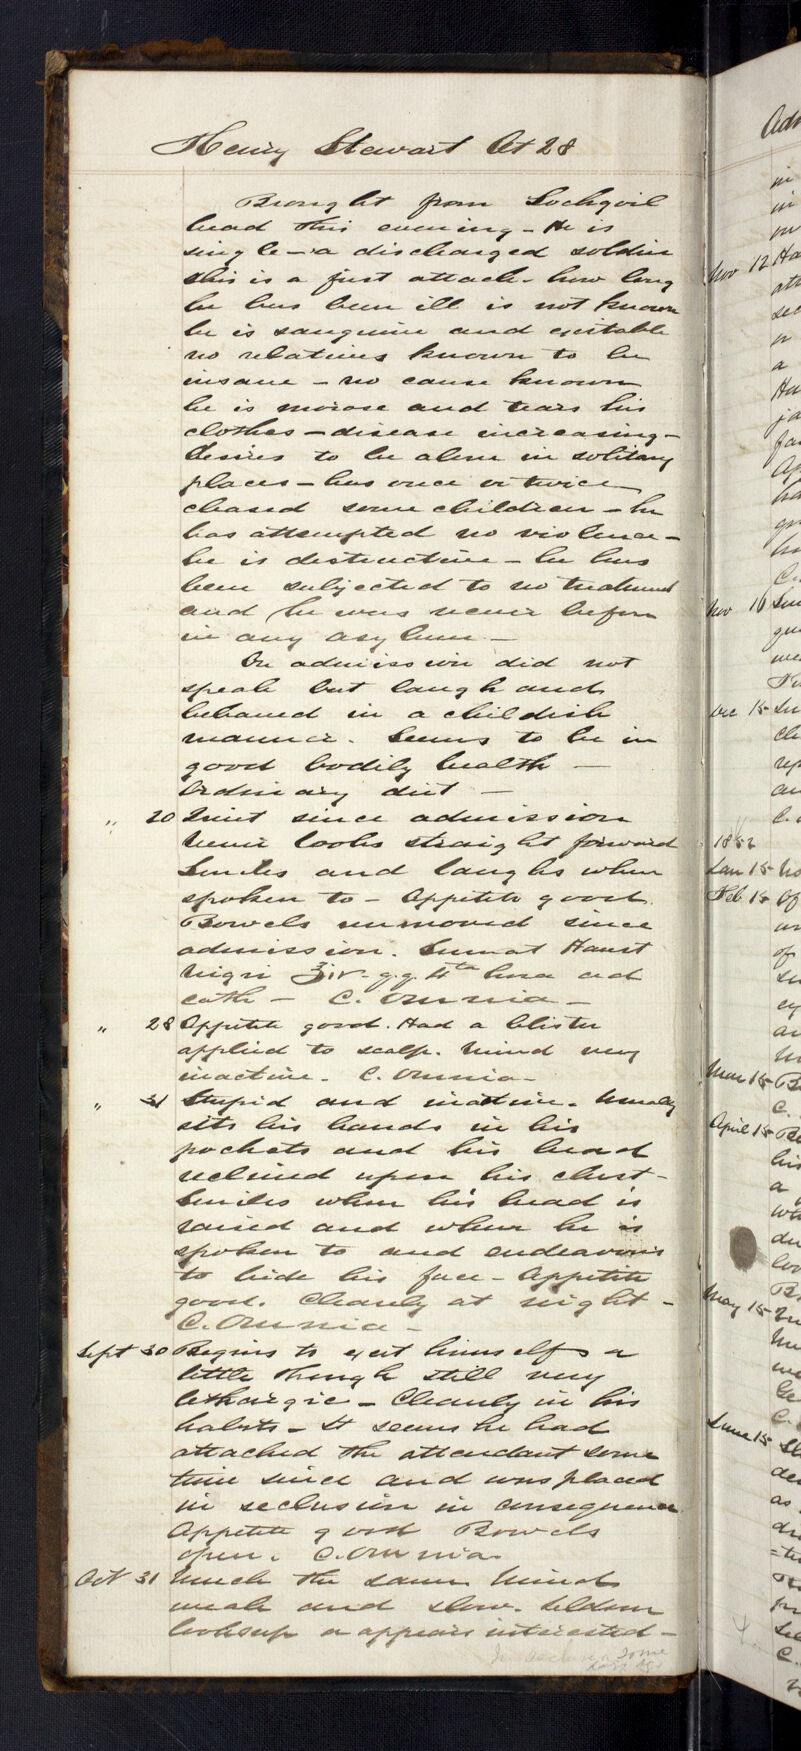 Henry Stewart At 28
Brought from Lochgoil
head this evening - He is
single - a discharged soldier
this is a first attack - how long
he has been ill is not known
he is sanguine and excitable
no relatives known to be
insane - no cause known
he is morose and tears his
clothes - disease increasing -
desires to be alone in solitary
places - has once or twice
chased some children - he
has attempted no violence -
he is destructive - he has
been subjected to no treatment
and he was never before
in any asylum -
On admission did not
speak but laugh and
behaved in a childish
manner. Seems to be in
good bodily health -
Ordinary diet -
" 20 Quiet since admission
Never looks straight forward
Smiles and laughs when
spoken to - Appetite good.
Bowels unmoved since
admission. Sumat Haust
Nigri ʒiv. q.q. 4ta hora ad
cath - C. Omnia -
" 28 Appetite good. Had a blister
applied to scalp. Mind very
inactive. C. Omnia -
" 31 Stupid and inactive. Usually
sits his hands in his
pockets and his head
reclined upon his chest -
Smiles when his head is
raised and when he is
spoken to and endeavours
to hide his face - Appetite
good. Cleanly at night -
C. Omnia -
Sept 30 Begins to exert himself a
little though still very
lethargic - Cleanly in his
habits - It seems he had
attacked the attendant some
time since and was placed
in seclusion in consequence
Appetite good Bowels
open. C. Omnia
Oct 31 Much the same. Mind
weak and slow. Seldom
looks up or appears interested -
In seclusion some
Nov 12
Nov 16
Dec 15
1852
Jan 15 No
Feb 15 Of
Mar 15
April 15
May 15
June 15